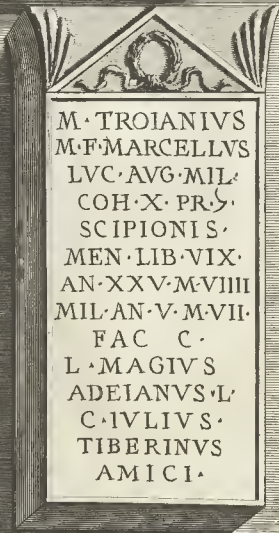 M · TROIANIVS
M · F · MARCELLVS
LVC · AVG · MIL ·
COH · X · PR · Ϟ ·
SCIPIONIS ·
MEN · LIB · VIX ·
AN · XXV · M · VIIII
MIL · AN · V · M · VII ·
FAC C ·
L · MAGIVS
ADEIANVS · L ·
C · IVLIVS ·
TIBERINVS
AMICI ·